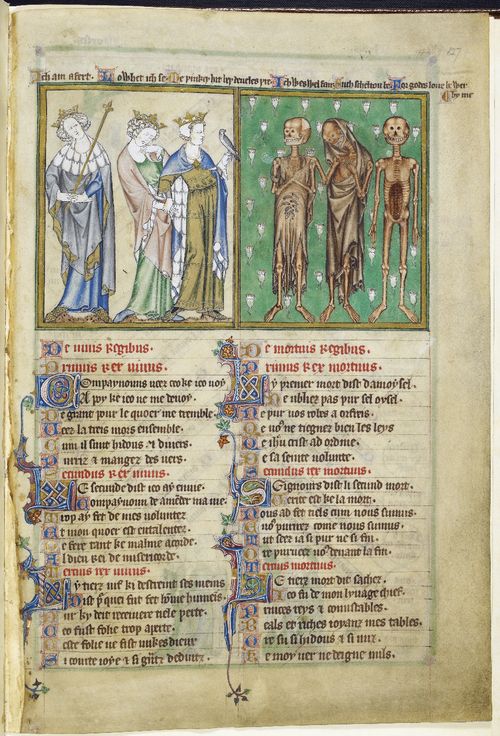 127
Ich am afert. Lo whet ich se. Me þinkeþ hit bey deueles þre. Ich wes wel fair. Such scheltou be. For godes loue be wer
by me
De uiuis regibus.
Primus rex uiuus.
Compaynouns ueez ceo ke ieo uoy
A poy ke ieo ne me deuoy
De grant pour le quoer me tremble
Ueez la treis mors ensemble.
Cum il sunt hidous & diuers
Purriz & mangez des uers.
Secundus rex uiuus.
Le secunde dist ieo ay enuie.
Compaynoun de amender ma uie.
Trop ay fet de mes uoluntez
De mon quoer est entalentez
De fere tant ke malme acorde
Al dieu rei de misericorde.
Tertius rex uiuus.
Ly tierz uif ki destreint ses meins
Dist pur quei fut fet home humeis.
Pur ky deit receuiere tiele perte.
Ceo fust folie trop aperte.
Ceste folie ne fist unkes dieu
A courte ioye & si granz deduiz.
De mortuis regibus.
Primus rex mortuus.
Ly premer mort dist damoysel
Ne ubliez pas pur sel oysel
Ne pur uos robes a orfreis
Qe uous ne tiegnez bien les leys
Qe ihu crist ad ordine
De sa seinte uolunte.
Secundus rex mortuus.
Seignours dist li secund mort.
Uerite est ke la mort.
Nous ad fet tiels cum nous sumus
E uous purrirez come nous sumus.
Tut seez ia si pur ne si fin
Or purueez uous deuant la fin.
Tertius mortuus.
Le tierz mort dit sachez
Ieo fu de mon lynage chief.
Princes reys & conustables.
Beals et riches ioyanz mes tables.
Or su si hidous & si nuz.
Ke moy uer ne deigne nuls.